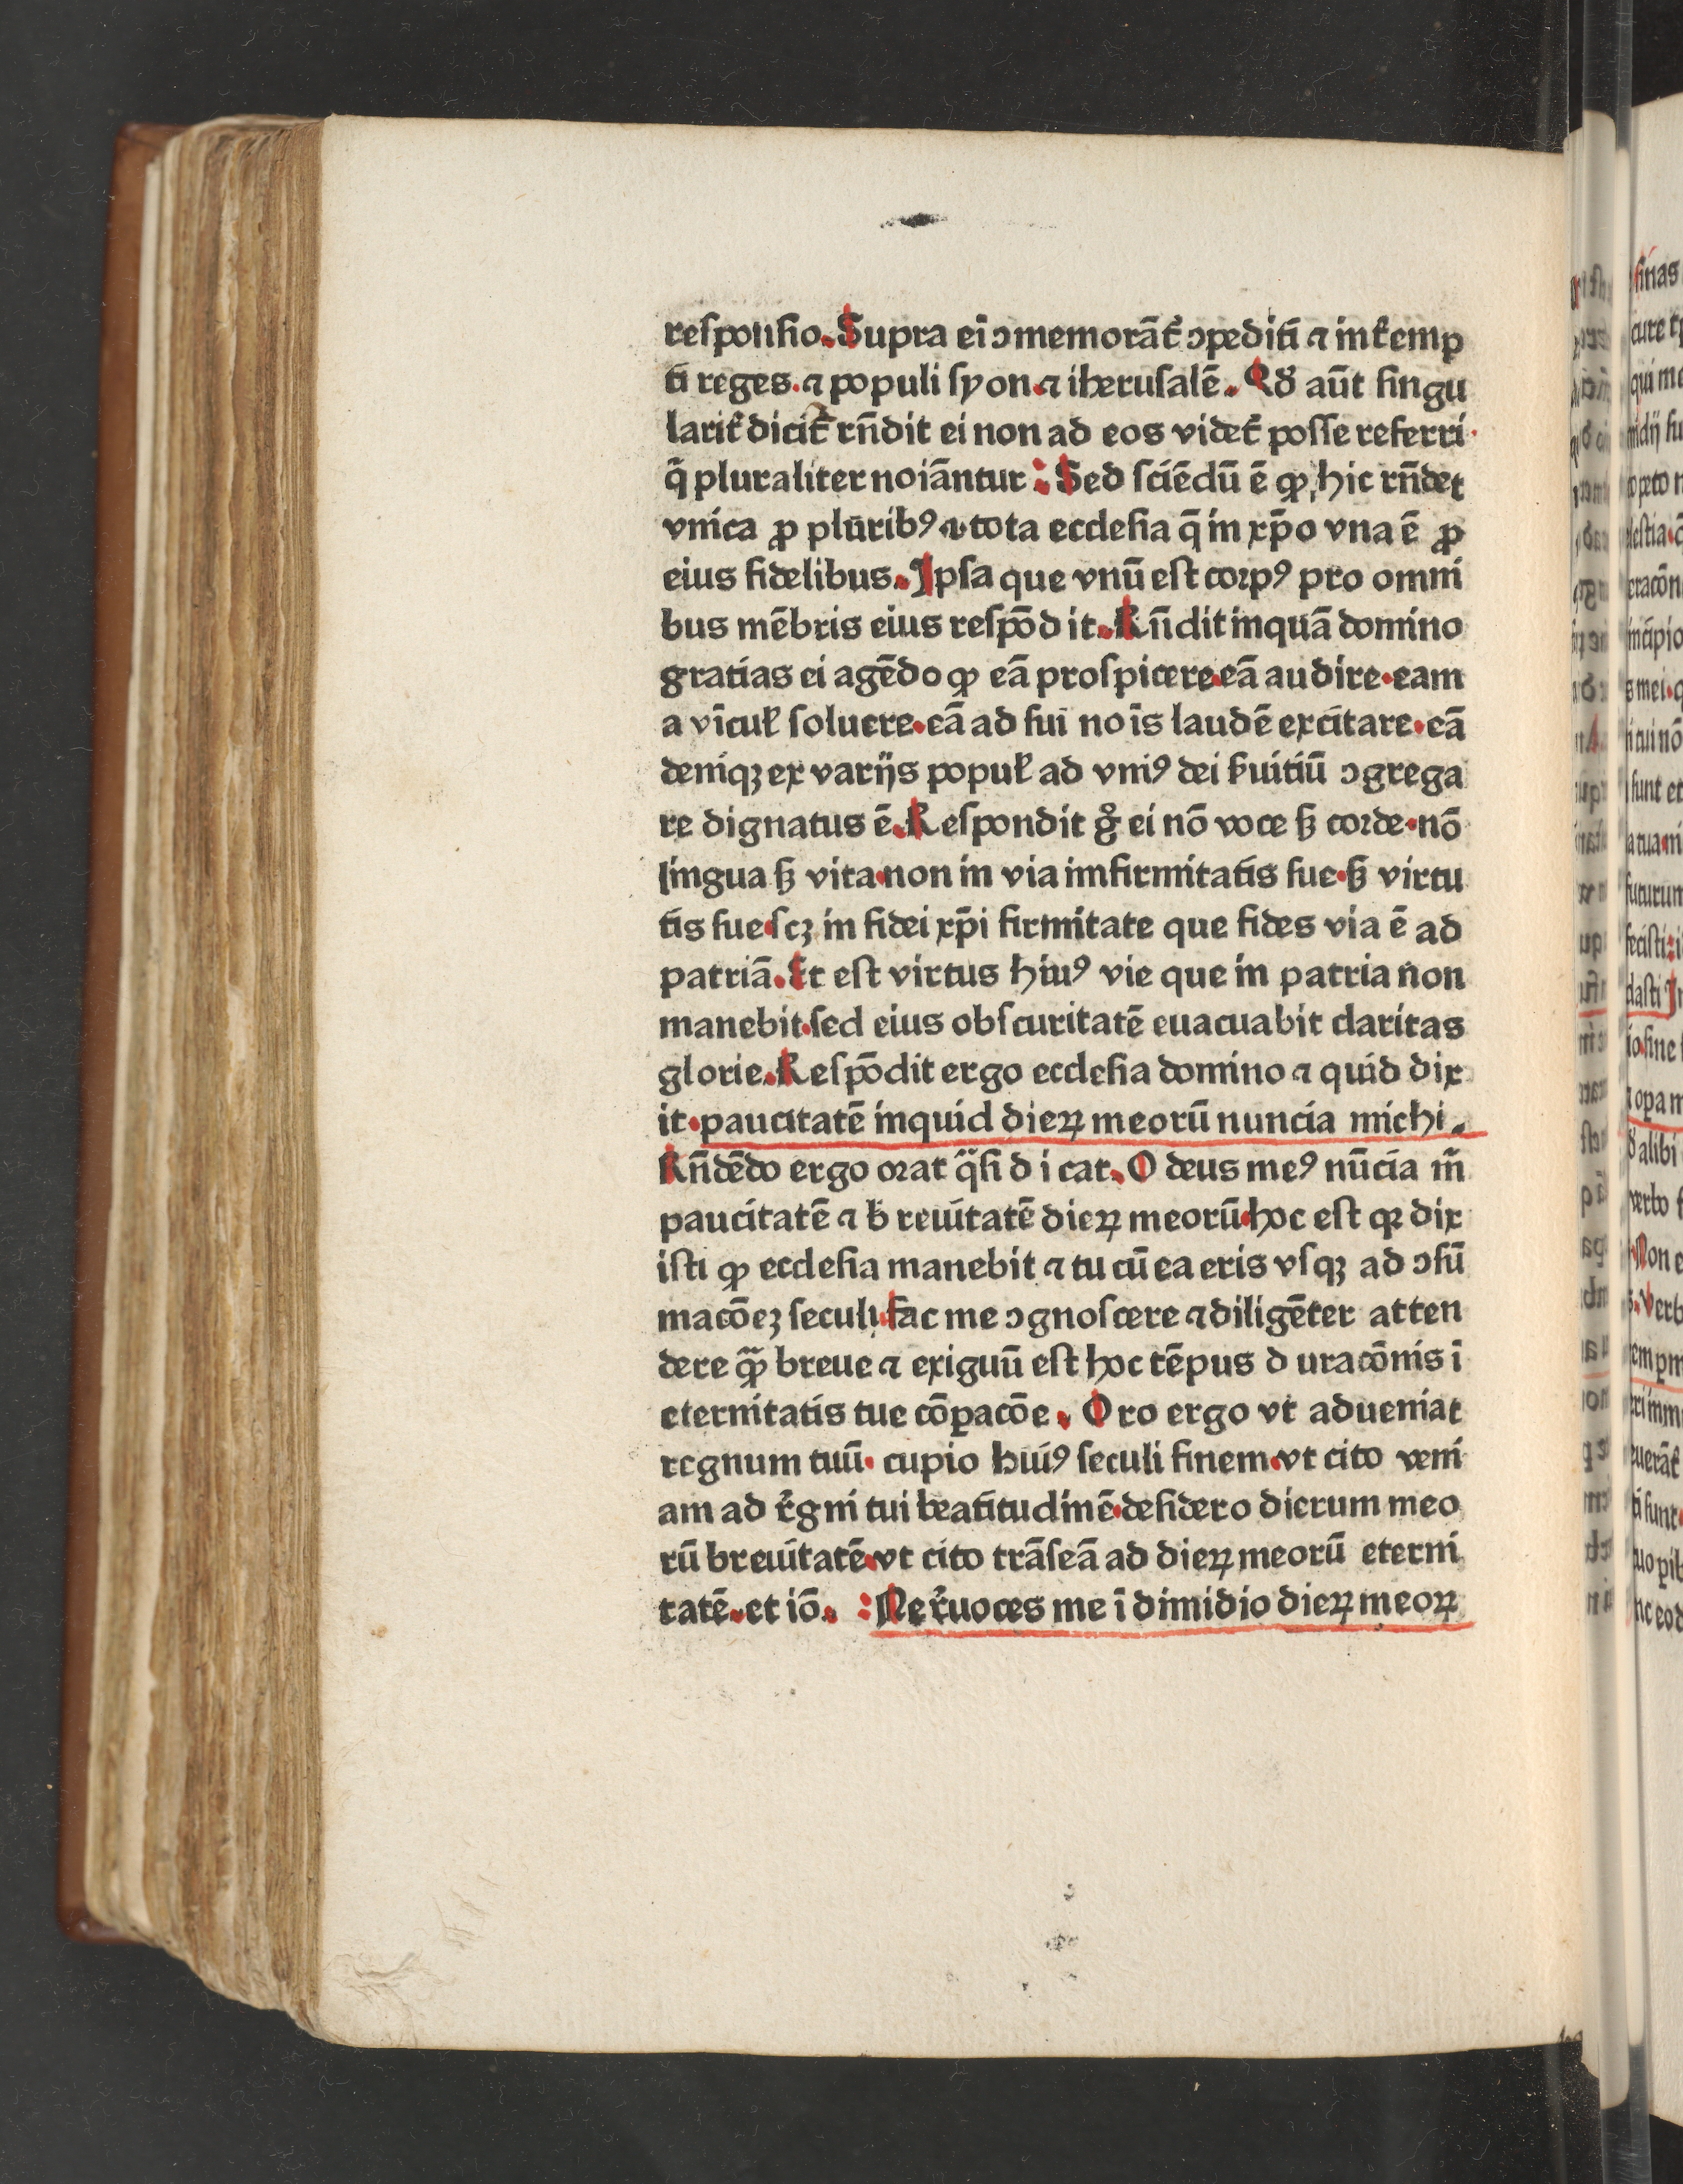 reſponſio. Supra ei ɔmemorāt᷑ ɔpediti ⁊ int᷑emp
ti reges. ⁊ populi ſyon. ⁊ iheruſalē. Qď aūt ſingu
larit᷑ dicit᷑ rn̄dit ei non ad eos videt᷑ poſſe referri
q̄ pluraliter noīantur: Sed ſciēdū ē ꝙ, hic rn̄det
vnica ꝓ pluribꝰ ⁊ tota eccleſia q̄ in xp̄o vna ē ꝓ
eius fidelibus. Ipſa que vnū eſt corpꝰ pro omni
bus mēbris eius reſpōdit. Rn̄dit inquā domino
gratias ei agēdo ꝙ eā proſpicere. eā audire. eam
a vīcuł ſoluere. eā ad ſui noīs laudē excitare. eā
deniqꝫ ex varijs popuł ad vniꝰ dei ẜuitiū ɔgrega
re dignatus ē. Reſpondit gͦ ei nō voce ſꝫ corde. nō
lingua ſꝫ vita. non in via infirmitatis ſue. ſꝫ virtu
tis ſue. ſcꝫ in fidei xp̄i firmitate que fides via ē ad
patriā. Et eſt virtus hiuꝰ vie que in patria non
manebit. ſed eius obſcuritatē euacuabit claritas
glorie. Reſpōdit ergo eccleſia domino ⁊ quid dix
it. paucitatē inquid dieꝝ meorū nuncia michi.
Rn̄dēdo ergo orat q̄ſi dicat. O deus meꝰ nūcia m̄
paucitatē ⁊ breuitatē dieꝝ meorū. hoc eſt qꝛ dix
iſti ꝙ eccleſia manebit ⁊ tu cū ea eris vſqꝫ ad ɔſū
macōeꝫ ſeculi. fac me ɔgnoſcere ⁊ diligēter atten
dere ꝙ̄ breue ⁊ exiguū eſt hoc tēpus duracōnis ī
eternitatis tue cōꝑacōe. Oro ergo vt adueniat
regnum tuū. cupio huiꝰ ſeculi finem. vt cito veni
am ad r᷑gni tui beatitudinē. deſidero dierum meo
rū breuitatē. vt cito trāſeā ad dieꝝ meorū eterni
tatē. et iō. : Ne r᷑uoces me ī dimidio dieꝝ meoꝝ